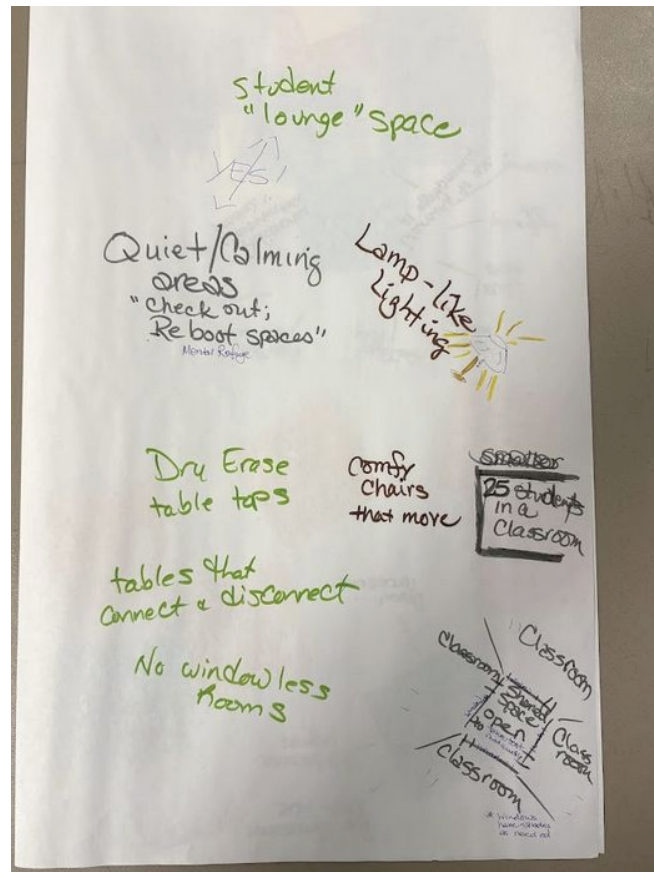 student
"lounge" space
YES!
Quiet/Calming
areas
"check out;
Reboot spaces"
Mental Refuge
Lamp-like
Lighting
Dry Erase
table tops
comfy
chairs
that move
smaller
25 students
in a
Classroom
tables that
connect & disconnect
No windowless
Rooms
Classroom
Classroom
Shared
Space
open
to
Class
room
Classroom
* windows
have shades
as needed